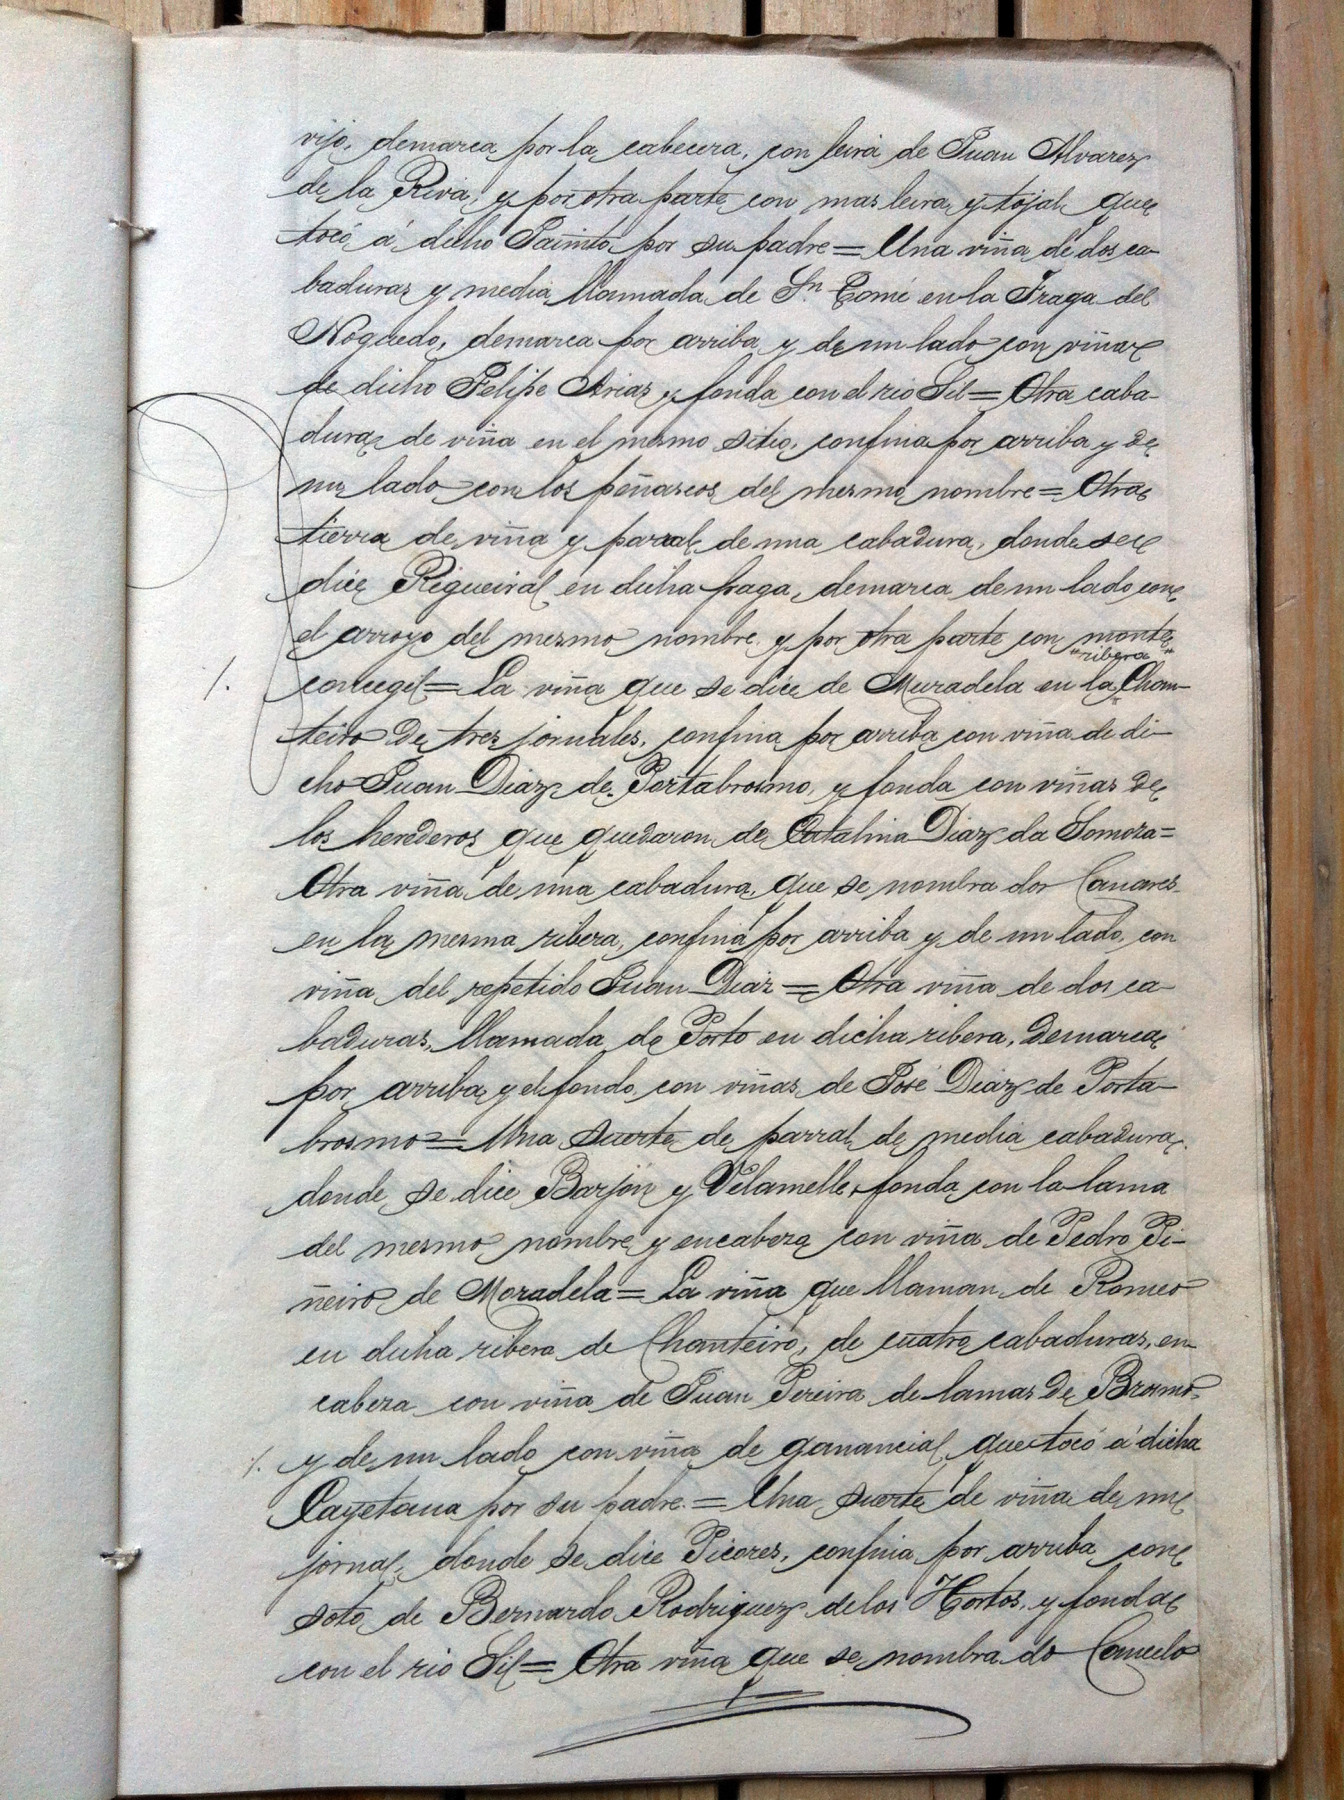 vijo, demarca por la cabecera, con leira de Juan Alvarez
de la Riva, y por otra parte con mas leira y tojal que
tocó á dicho Jacinto por su padre = Una viña de dos ca-
baduras y media llamada de Sn. Tomé en la Fraga del
Noguedo, demarca por arriba y de un lado con viñas
de dicho Felipe Arias y fonda con el rio Sil = Otra caba-
dura de viña en el mismo sitio, confina por arriba y de
un lado con los peñascos del mesmo nombre = Otra
tierra de viña y parral de una cabadura, donde se
dice Rigueiral en dicha fraga, demarca de un lado con
el arroyo del mesmo nombre y por otra parte con monte
"ribera"
/. concegil = La viña que se dice de Muradela en la Chan-
teiro de tres jornales, confina por arriba con viña de di-
cho Juan Diaz de Portabrosmo, y fonda con viñas de
los herederos que quedaron de Catalina Diaz da Somoza =
Otra viña de una cabadura, que se nombra dos Canares
en la mesma ribera, confina por arriba y de un lado, con
viña del repetido Juan Diaz = Otra viña de dos ca-
baduras, llamada de Porto en dicha ribera, demarca
por arriba y el fondo con viñas de José Diaz de Porta-
brosmo = Una suerte de parral de media cabadura,
donde se dice Barjón y Velamelle, fonda con la lama
del mesmo nombre y encabeza con viña de Pedro Pi-
ñeiro de Moradela = La viña que llaman de Romeo
en dicha ribera de Chanteiro, de cuatro cabaduras, en-
cabeza con viña de Juan Pereira de lamas de Brosmo,
/. y de un lado con viña de ganancial que tocó á dicha
Cayetana por su padre. = Una suerte de viña de un
jornal, donde se dice Picores, confina por arriba con
soto de Bernardo Rodriguez de los Hortos, y fonda
con el rio Sil = Otra viña que se nombra do Cancelo